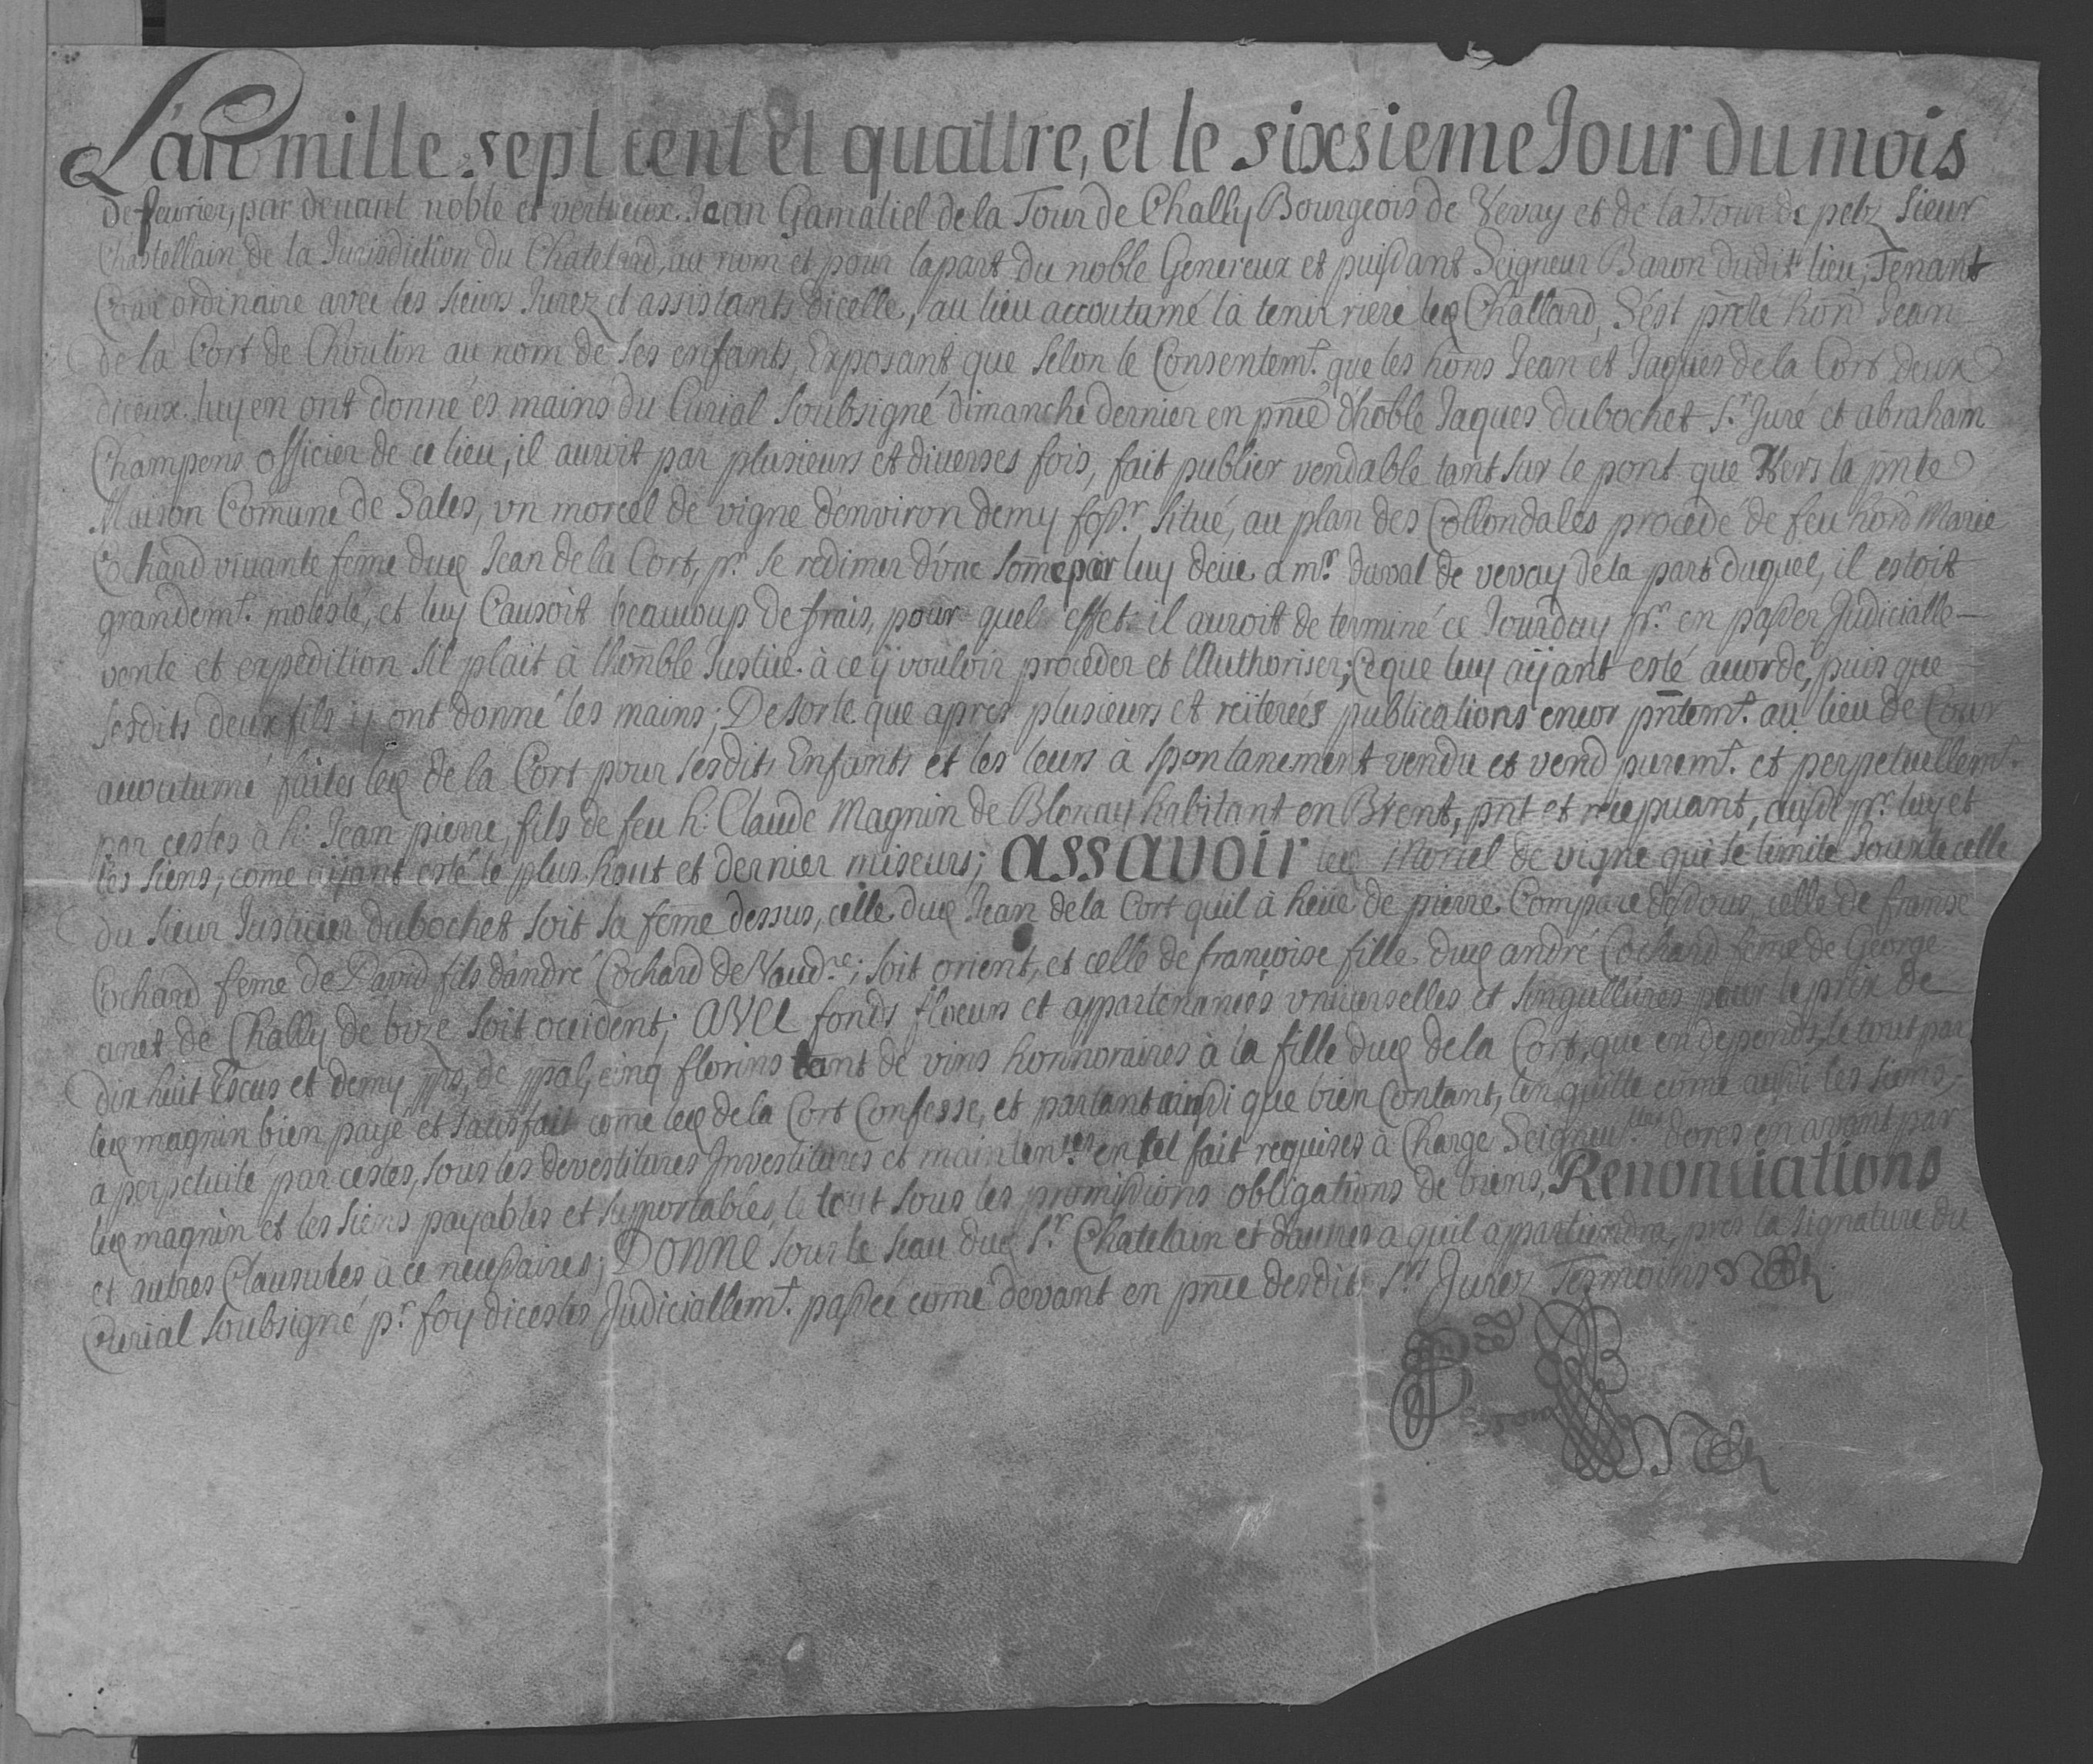 L'an mille sept cent et quattre, et le sixsieme Jour du mois
de feurier, par deuant noble et vertueux Jean Gamaliel de la Tour de Chally Bourgeois de Vevay et de la Tour de pelz Sieur
Chastellain de la Jurisdiction du Chatelard, au nom et pour la part du noble Genereux et puissant Seigneur Baron dudit lieu, Tenant
Cour ordinaire avec les sieurs Jurez et assistants d'icelle, au lieu accoutumé la tenir riere led Challard, S'est prnte hon Jean
de la Cort de Choulin au nom de ses enfants, Exposant que selon le Consentemt. que les hons Jean et Jaques de la Cort deux
diceux luy en ont donné és mains du Curial soubsigné dimanche dernier en pnce d'honble Jaques dubochet Sr. Juré et abraham
Champens officier de ce lieu, il auroit par plusieurs et diuerses fois, fait publier vendable tant sur le pont que Vers la pnte
Maison Comune de Sales, vn morcel de vigne d'environ demy fossr. situé, au plan des Collondales procedé de feu hond Marie
Cochard viuante feme dud Jean de la Cort, pr. se redimer d'vne some par luy deüe a mr. duval de vevay de la part duquel, il estoit
grandemt. molesté, et luy Causoit beaucoup de frais, pour quel effet il auroit determiné ce Jourduy pr. en passer Judicialle
vente et expedition s'il plait à lhonble Justice à ce ÿ vouloir proceder et l'Authoriser; Ce que luy aÿant esté acordé, puis que
sesdits deux fils ÿ ont donné les mains; De sorte que apres plusieurs et reiterées publications encor pntemt. au lieu de Cour
accoutumé faites led de la Cort pour sesdits Enfants et les leurs à spontanement vendu et vend puremt. et perpetuellemt.
par cestes à h: Jean pierre, fils de feu h: Claude Magnin de Blonay habitant en Brent, pnt et recepuant, aussi pr. luy et
les siens, come aÿant esté le plus haut et dernier miseurs; assavoir led Morcel de vigne qui se limite Jouxte celle
du sieur Justicier dubochet soit sa feme dessus, celle dud Jean de la Cort quil à heüe de pierre Compare dessous, celle de franse
Cochard feme de David fils d'andré Cochard de Vaud.re; soit orient, et celle de françoise fille dud andré Cochard feme de George
anet de Chally de bize soit occident; avec fonds floeurs et appartenances vniuerselles et singullieres pour le prix de
dix huit Escus et demy pps, de ppal, cinq florins tant de vins honnoraires à la fille dud de la Cort, que en depends, le tout par
led magnin bien payé et satisfait come led de la Cort Confesse, et partant ainssi que bien Contant, l'en quitte come aussi les siens,
a perpetuité par cestes, sous les devestitures Jnvestitures et maintences en tel fait requises à Charge Seigneu.lles dores en avant par
led magnin et les siens payables et supportables, le tout sous les promissions obligations de biens, Renonciations
et autres Clausules à ce necessaires; Donné sous le seau dud Sr. Chatelain et d'autres a quil appartiendra, prés la signature du
Curial soubsigné pr. foy dicestes Judiciallemt. passée come devant en pnce desdits Srs Jurez Tesmoins